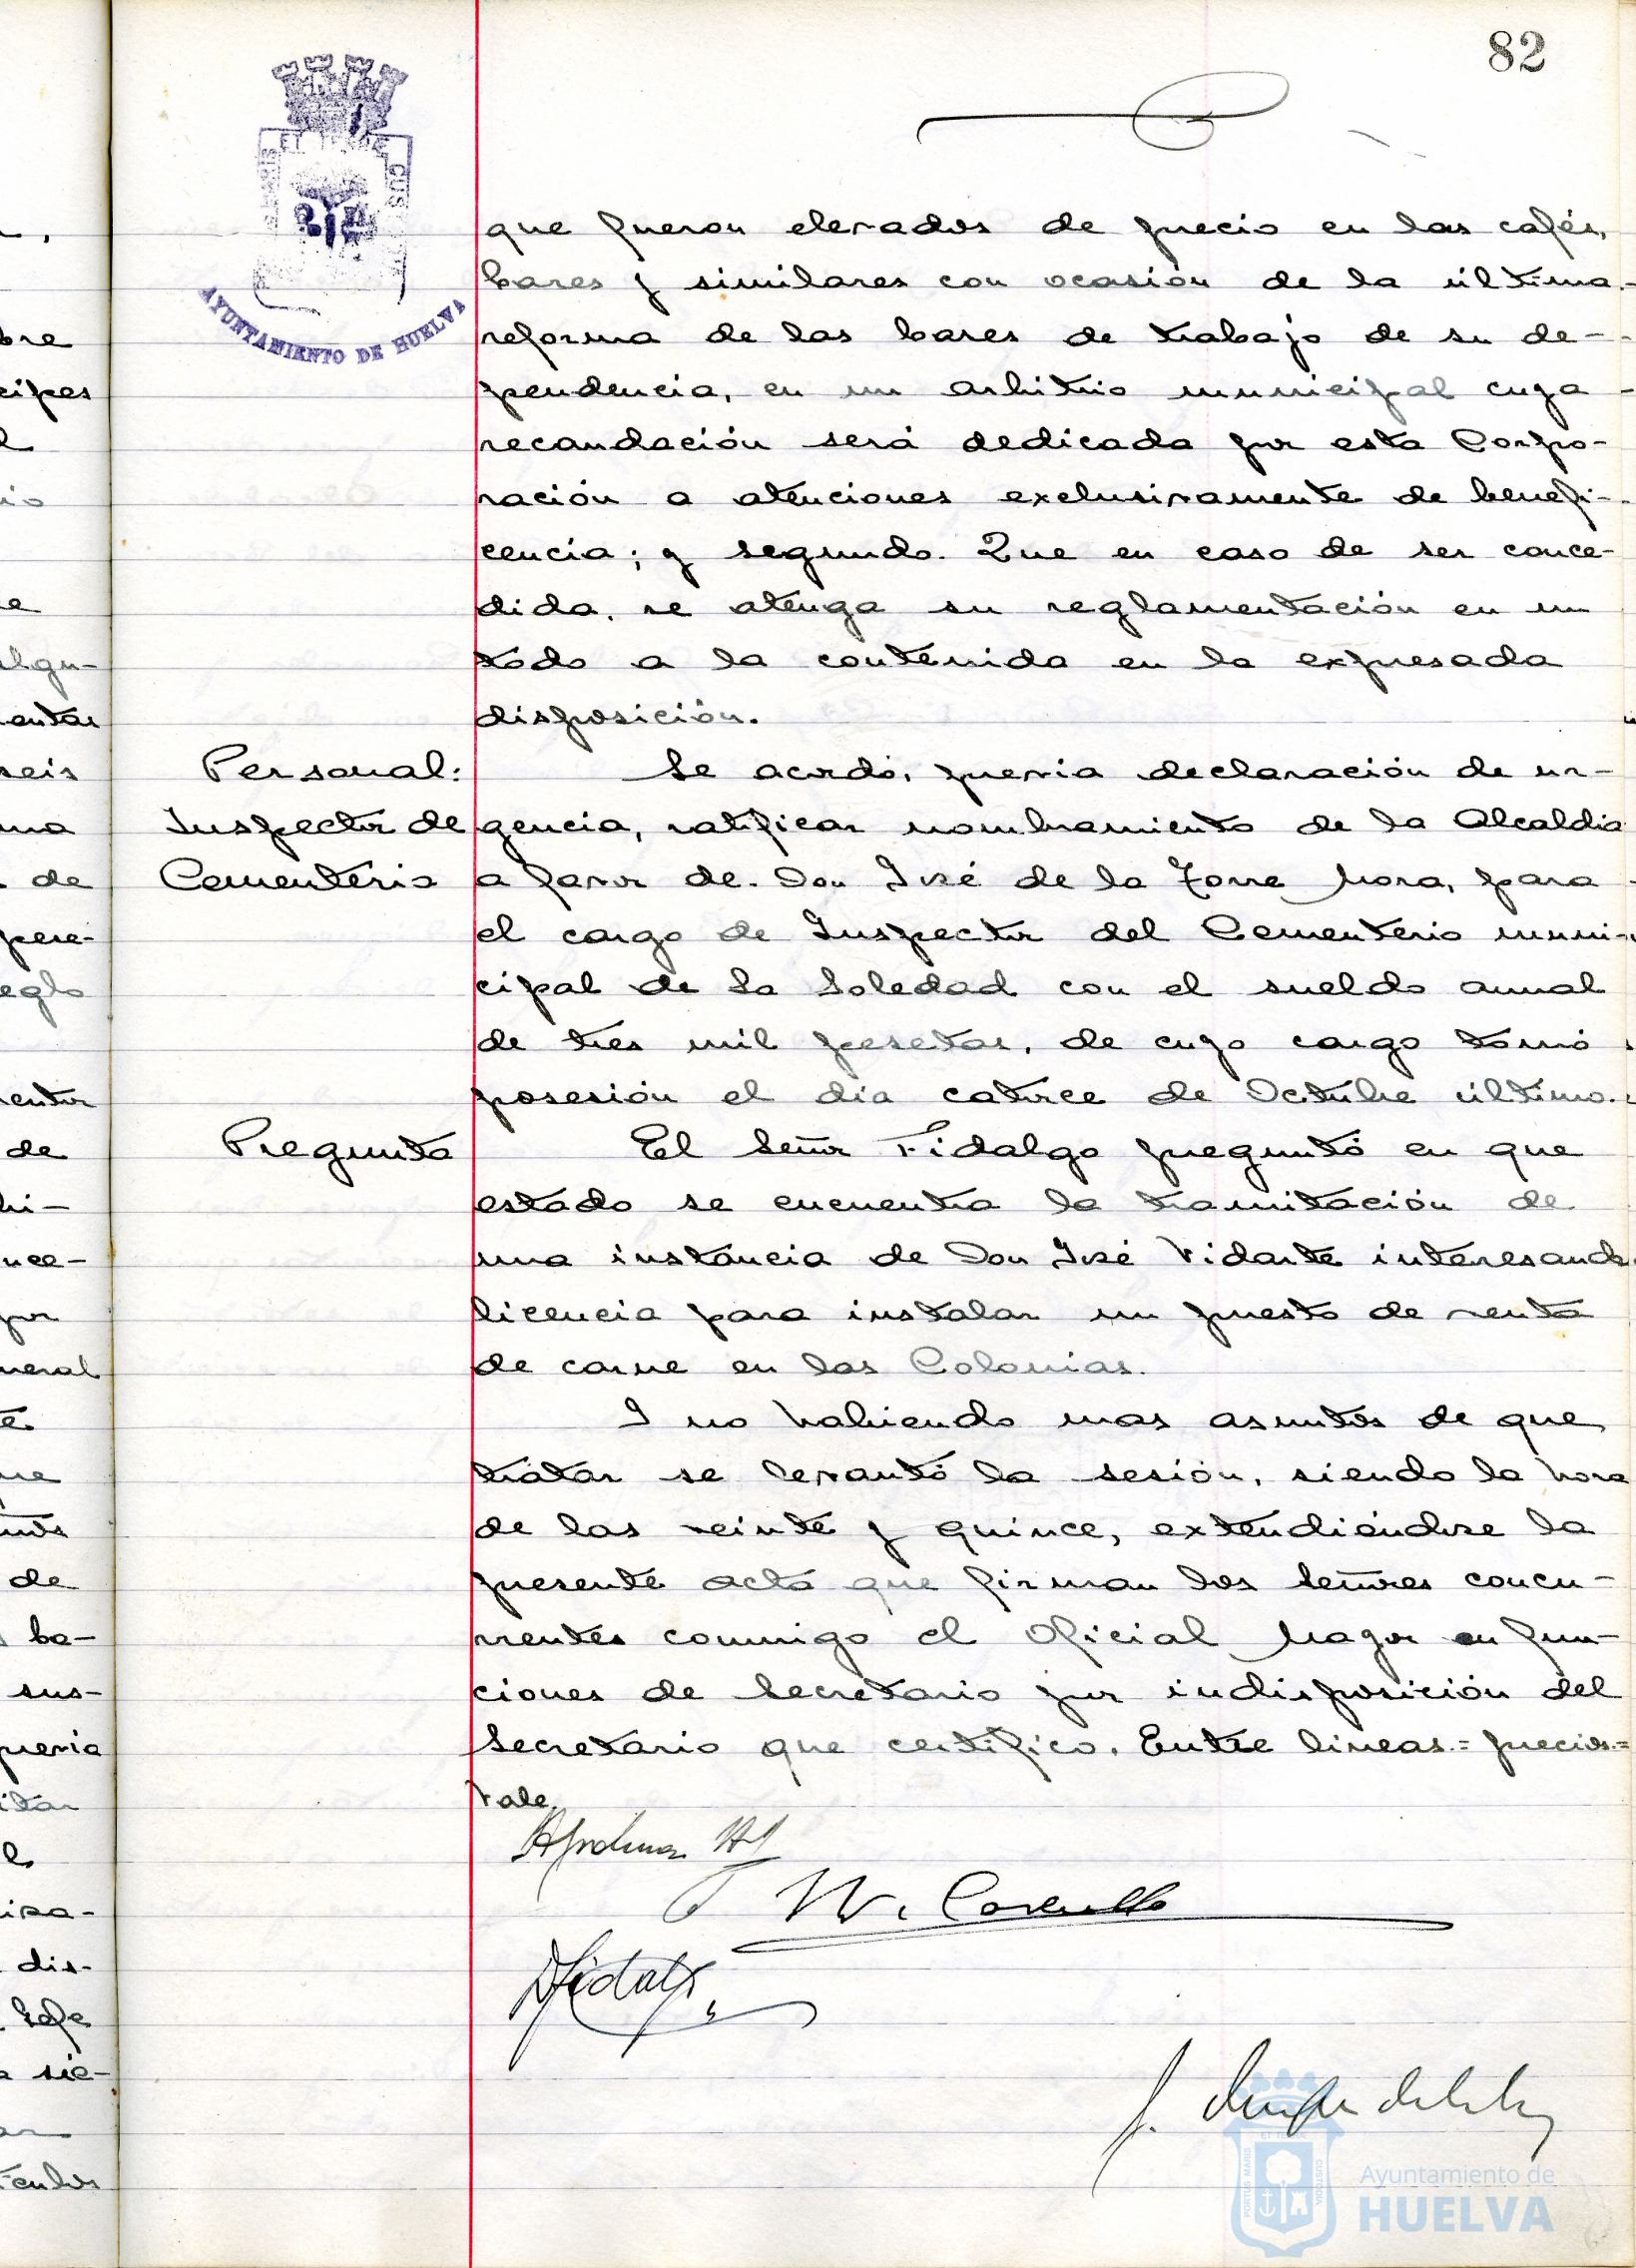 82
AYUNTAMIENTO DE HUELVA
que fueron elevados de precio en los cafés,
bares y similares con ocasión de la última
reforma de las bases de trabajo de su de-
pendencia, en un arbitrio municipal cuya
recaudación será dedicada por esta Corpo-
ración a atenciones exclusivamente de benefi-
cencia; y segundo. Que en caso de ser conce-
dida, se atenga su reglamentación en un
todo a la contenida en la expresada
disposición.
Personal:
Inspector de
Cementerio
Se acordó, previa declaración de ur-
gencia, ratificar nombramiento de la Alcaldia
a favor de Don José de la Torre Mora, para
el cargo de Inspector del Cementerio muni-
cipal de la Soledad con el sueldo anual
de tres mil pesetas, de cuyo cargo tomó
posesión el día catorce de Octubre último.
Pregunta
El Señor Fidalgo preguntó en que
estado se encuentra la tramitación de
una instáncia de Don José Vidarte interesando
licencia para instalar un puesto de venta
de carne en las Colonias.
Y no habiendo mas asuntos de que
tratar se levantó la sesión, siendo la hora
de las veinte y quince, extendiéndose la
presente acta que firman los Señores concu-
rrentes conmigo el Oficial Mayor en fun-
ciones de Secretario por indisposición del
Secretario que certifico. Entre lineas.= precios.=
Vale.
Ayuntamiento de
HUELVA